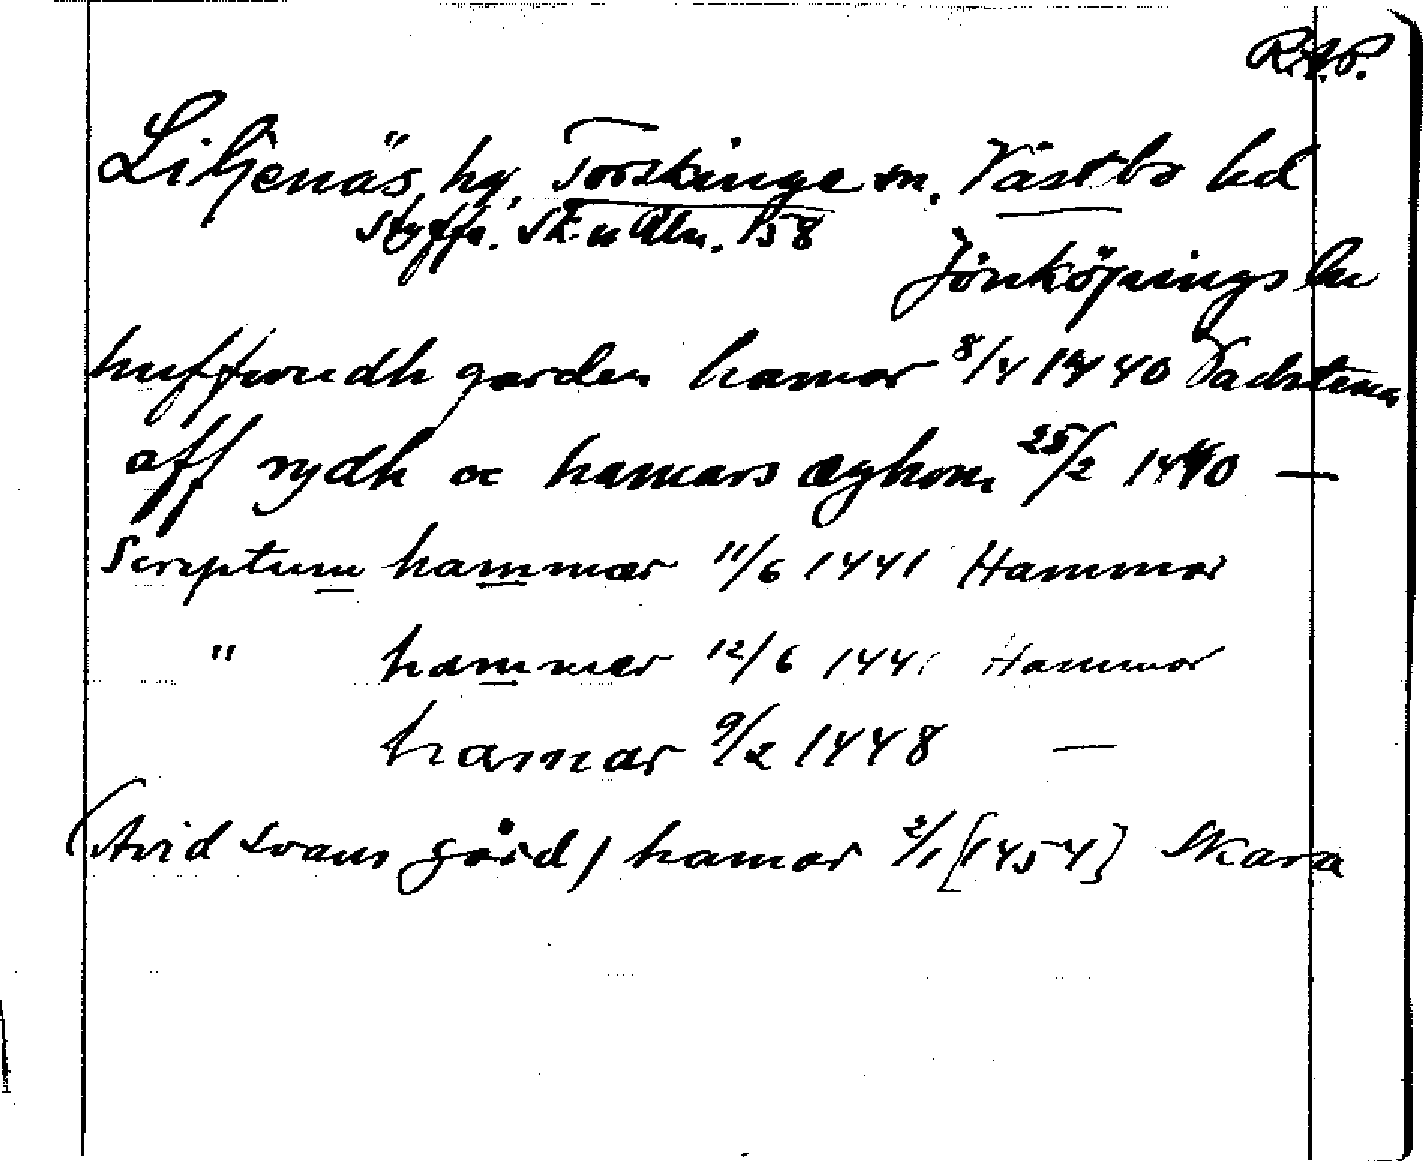 R.A.P.
Liljenäs, hg, Torskinge sn, Västbo hd
Styffe. Sk. u Un. 158
Jönköpings län
huffwudh garden hamar 8/4 1440 Vadstena
aff rydh oc hamars æghom 25/2 1440 —
Scriptum hammar 11/6 1441 Hammar
" hammar 12/6 1441 Hammar
hamar 9/2 1448 —
(Arvid Svans gård) hamar 2/1 [1454] Skara